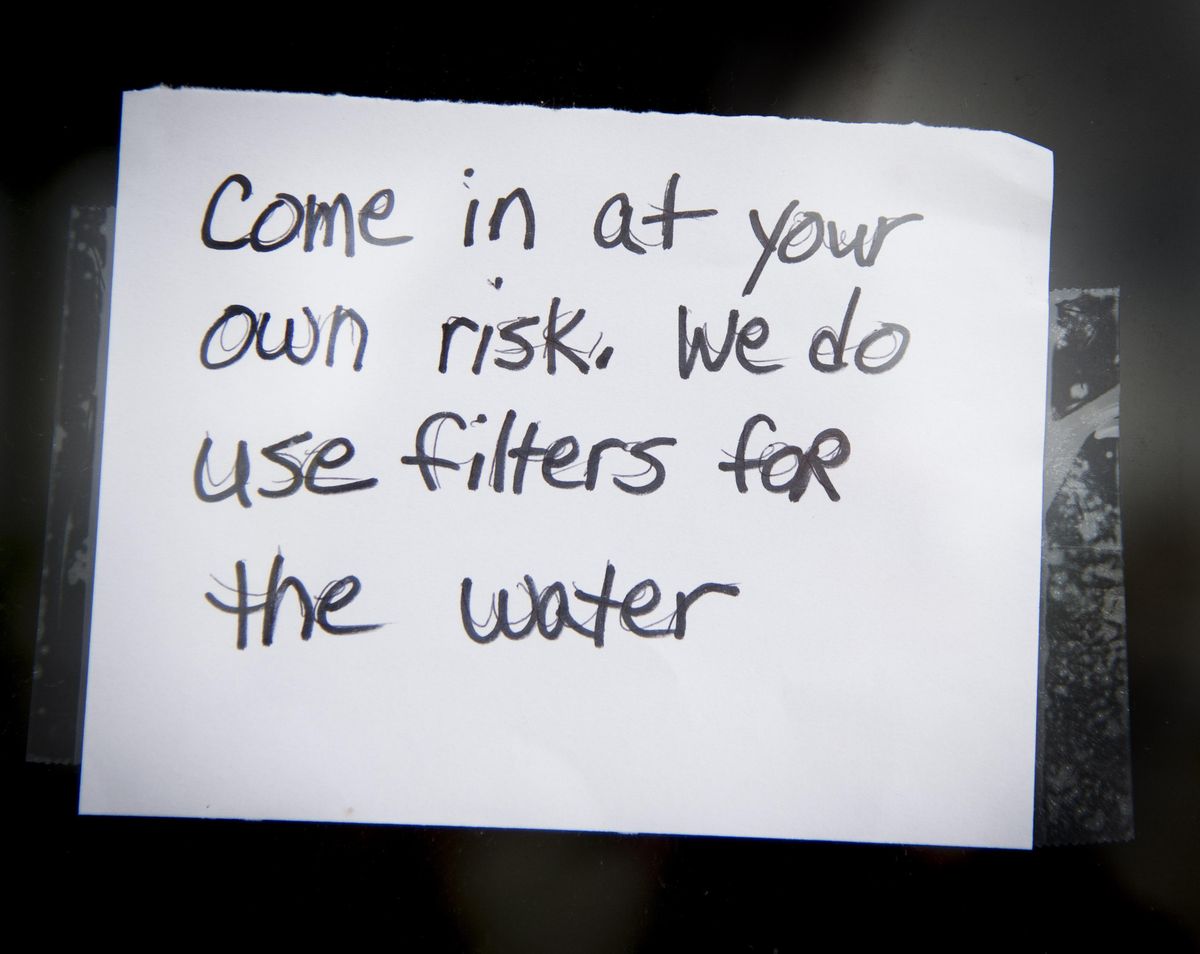 Come in at your
own risk. We do
use filters for
the water